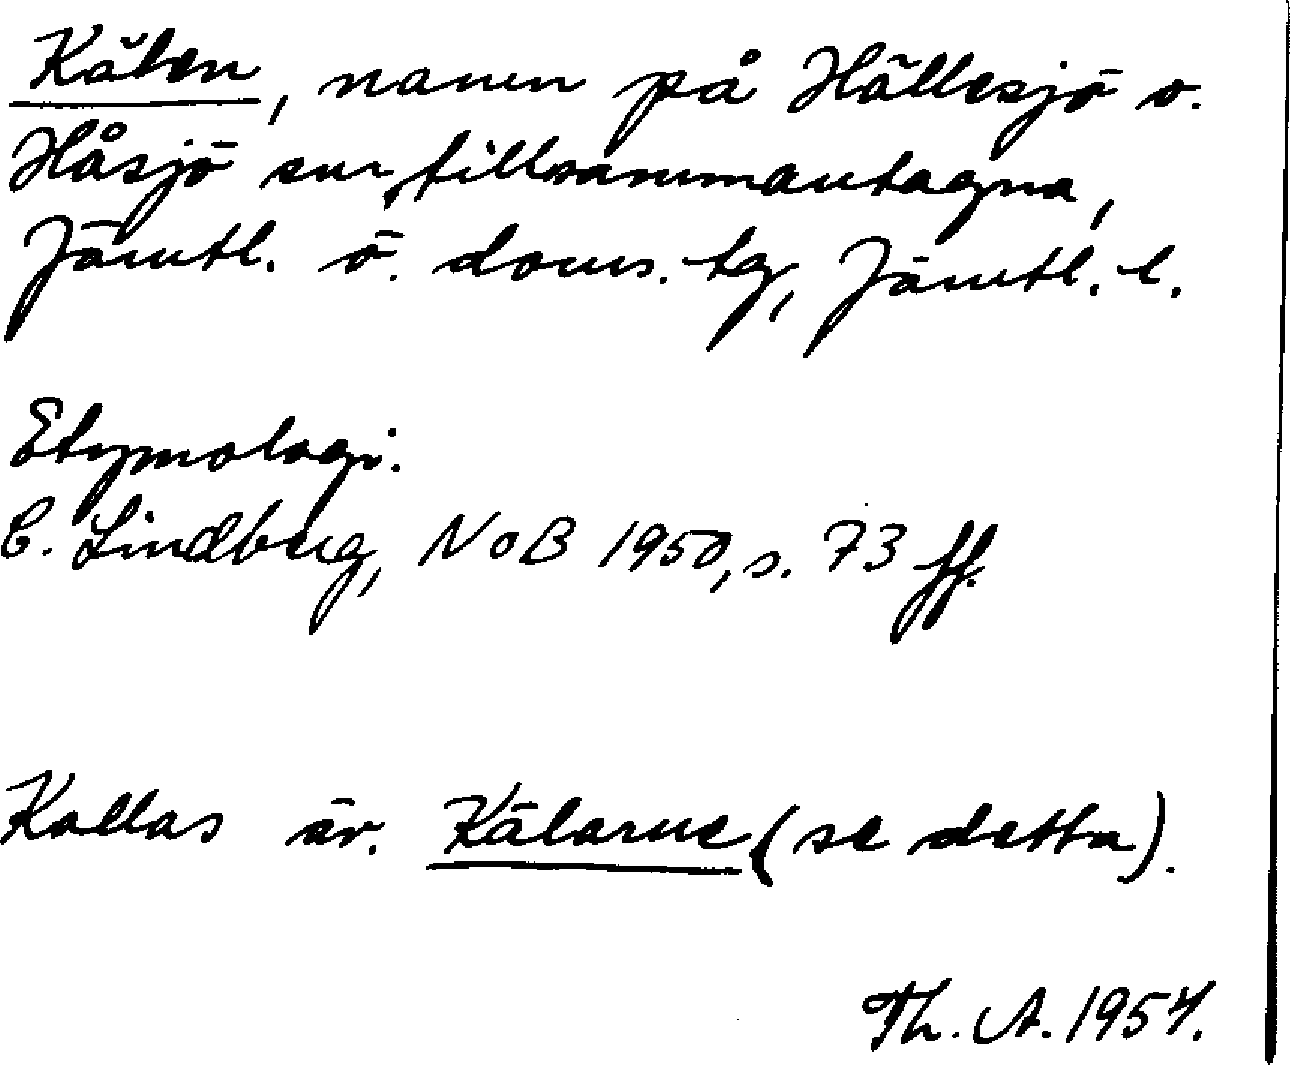 Kälen, namn på Hällesjö o.
Håsjö snr, tillsammantagna,
Jämtl. ö. doms. tg, Jämtl. l.
Etymologi.
C. Lindberg, NoB 1950, s. 73 ff.
Kallas äv. Kälarne (se detta).
Th. A. 1954.